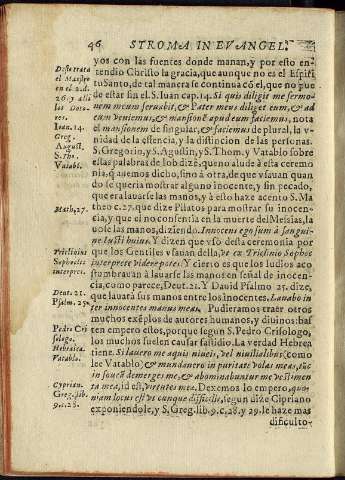 46 STROMA IN EVANGEL.
yos con las fuentes donde manan, y por esto en-
tendio Christo la gracia, que aunque no es el Espiri
tu Santo, de tal manera se continua cõ el, que no pue
de estar sin el. S. Iuan cap. 14. Si quis diligit me sermo-
nem meum seruabit, & Pater meus diliget eum, & ad
eum veniemus, & mansionẽ apud eum faciemus, nota
el mansionem de singular, & faciemus de plural, la v-
nidad de la essencia, y la distincion de las personas.
S. Gregorio, y S. Agustin, y S. Thom. y Vatablo sobre
estas palabras de Iob dizẽ, que no alude a esta ceremo
nia, q̃ auemos dicho, sino à otra, de que vsauan quan
do se queria mostrar alguno inocente, y sin pecado,
que era lauarse las manos, y à esto haze acento S. Ma
theo c. 27, que dize Pilatos para mostrar su inocen-
cia, y que el no consentia en la muerte del Messias, la
uole las manos, diziendo. Innocens ego sum à sangui-
ne Iusti huius. Y dizen que vsò desta ceremonia por
que los Gentiles vsauan della, ve ex Triclinio Sophoc
interprete videre potes. Y cierto es que los Iudios aco
stumbrauan à lauarse las manos en señal de inocen-
cia, como parece, Deut. 21. Y Dauid Psalmo 25. dize,
que lauarà sus manos entre los inocentes. Lauabo in-
ter innocentes manus meas, Pudieramos traer otros
muchos exẽplos de autores humanos, y diuinos: bas
ten empero estos, porque segun S. Pedro Crisologo,
los muchos suelen causar fastidio. La verdad Hebrea
tiene. Si lauero me aquis niueis, vel niuilialibus (como
lee Vatablo) & mundauero in puritate volas meas, tũc
in foueã demerges me, & abominabuntur me vestimen
ta mea, id est, virtutes meæ. Dexemos lo empero, quo-
niam locus est vt cunque difficilis, segun dize Cipriano
exponiendole, y S. Greg. lib. 9. c. 28. y 29. le haze mas
dificulto-
Desto trata
el Maestro
en el 2. d.
26. y alli
los Doto-
res.
Ioan. 14.
Greg.
August.
S. Tho.
Vatabl.
Math. 27.
Triclinius
Sophoclis
interpres.
Deut. 21.
Psalm. 25.
Pedro Cri
sologo.
Hebraica.
Vatablo.
Cyprian.
Greg. lib.
9. c. 28.